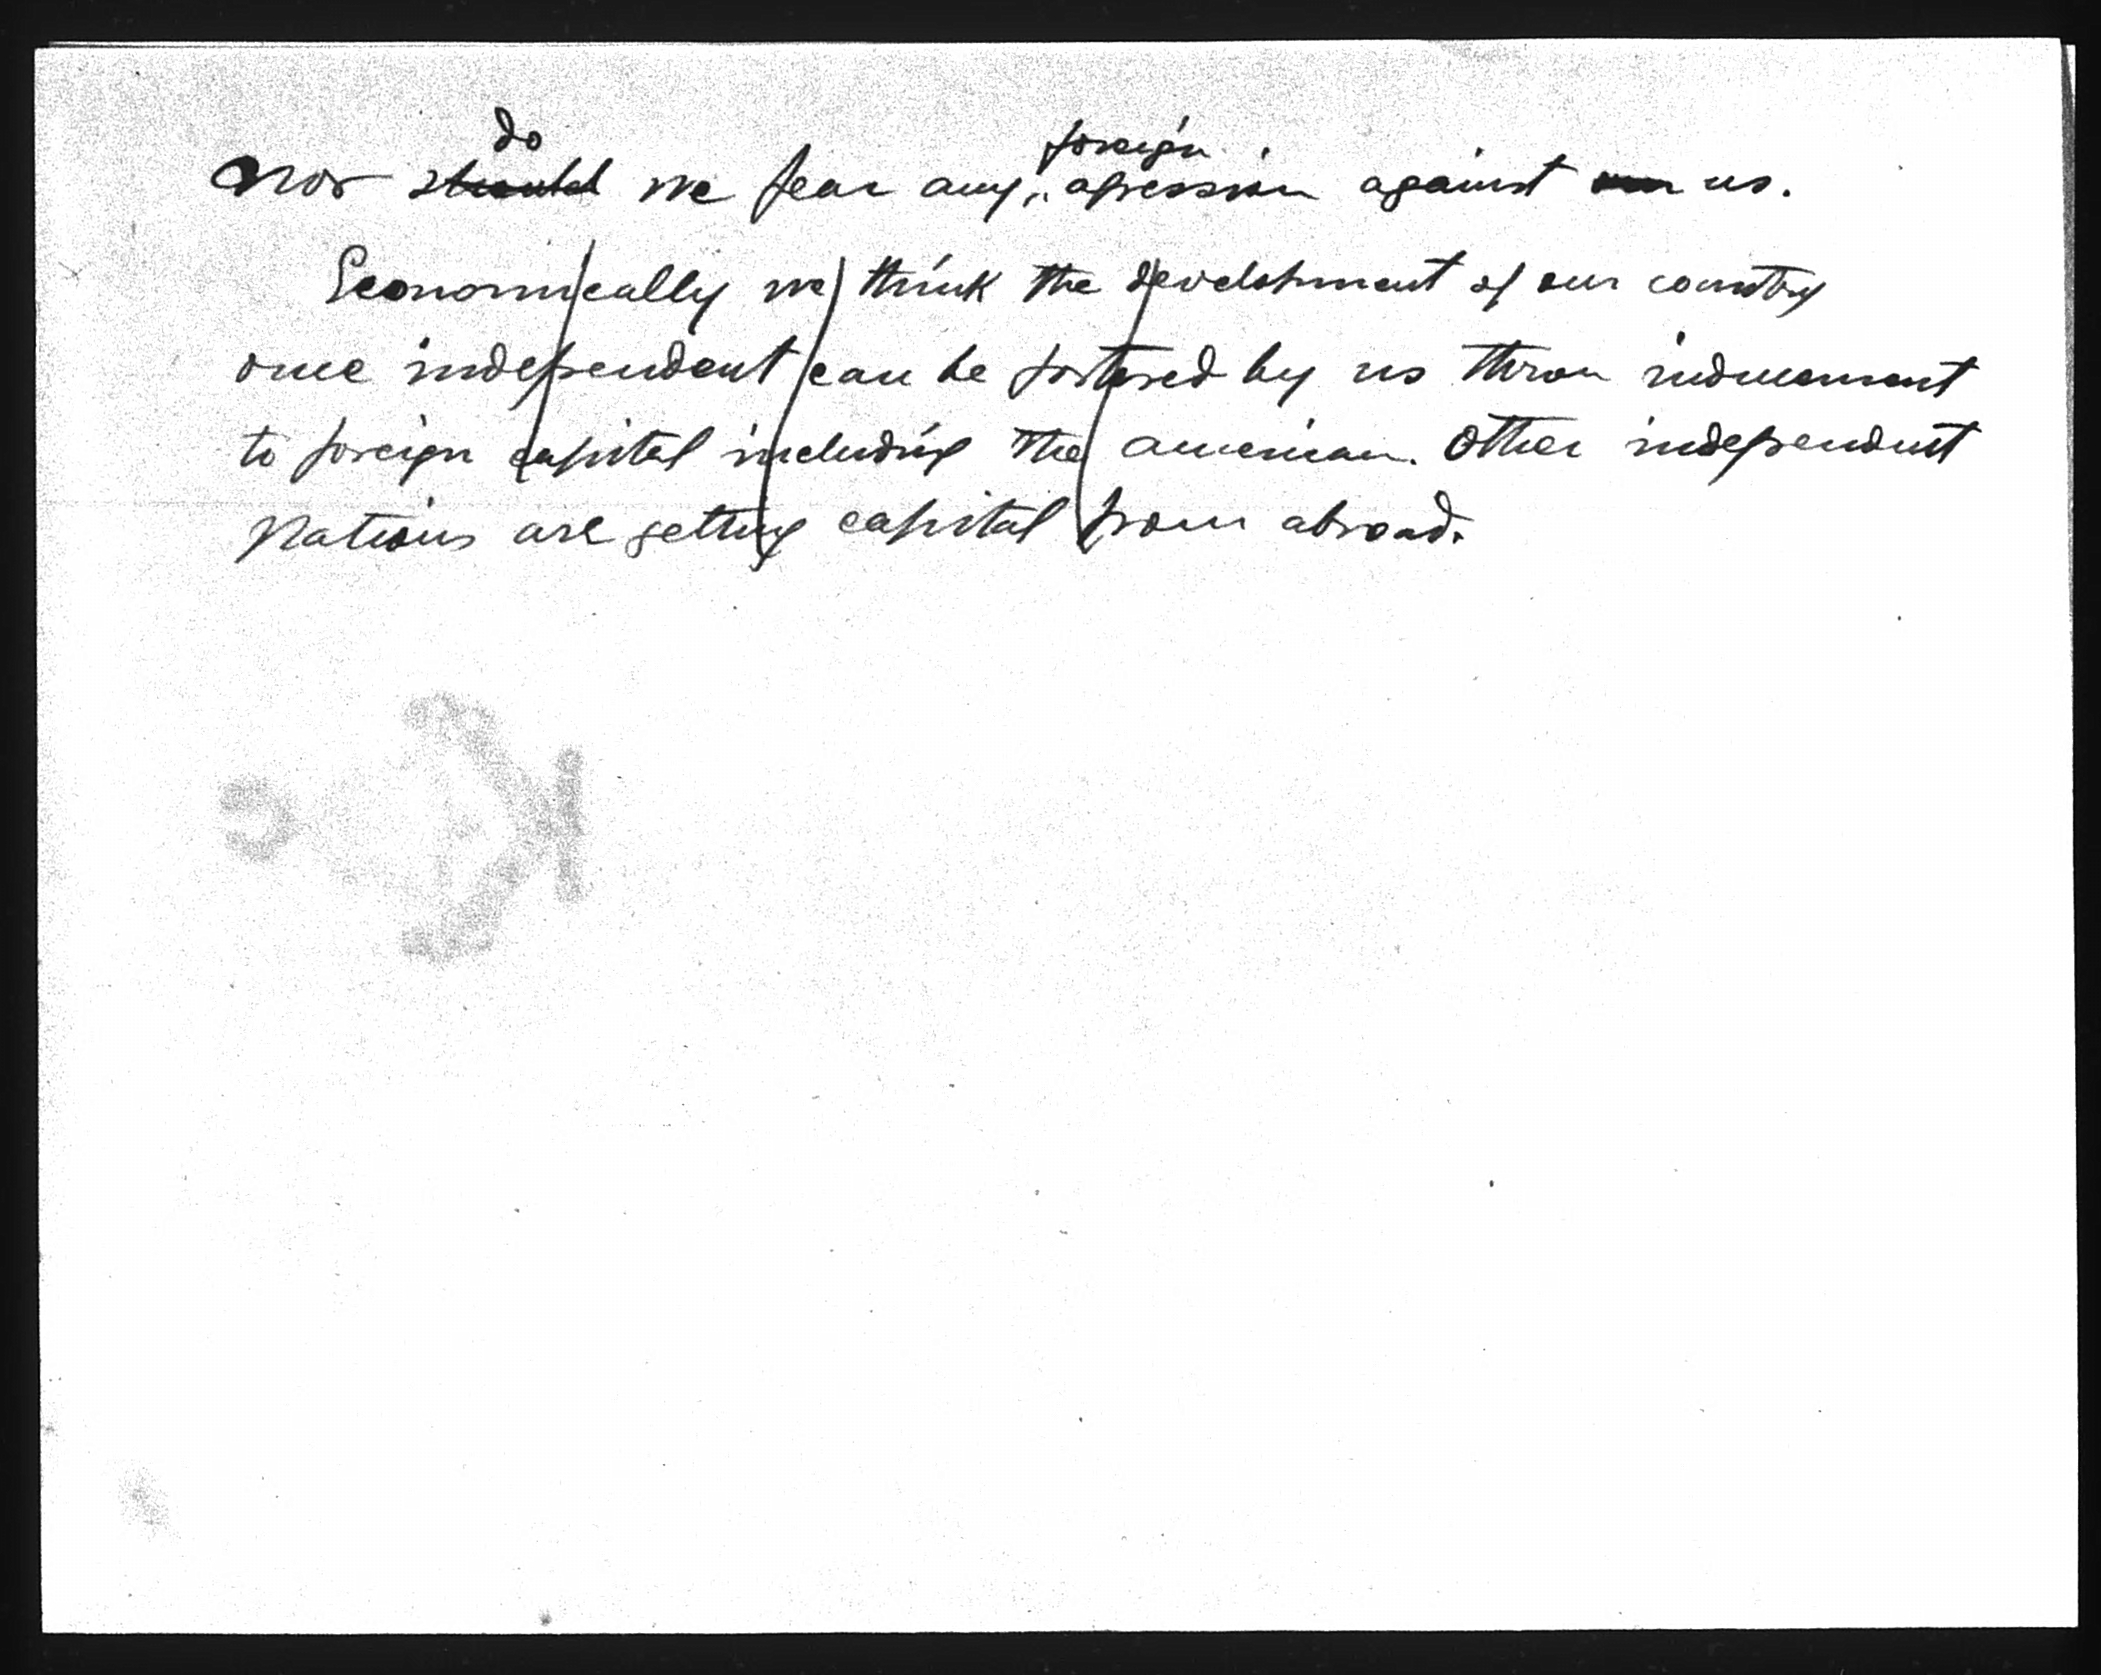 do foreign
nor should we fear any agression against us.
Economically we think the develohment of our country
once independent can be fostered by us throu inducement
to foreign capital including the american. Other independent
Nations are getting capital from abroad.